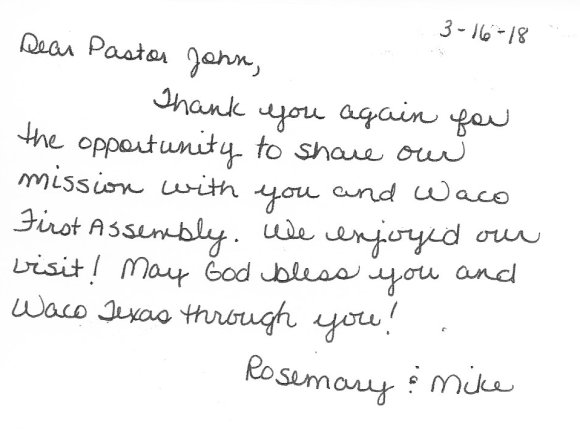 3-16-18
Dear Pastor John,
Thank you again for
the opportunity to share our
mission with you and Waco
First Assembly. We enjoyed our
visit! May God bless you and
Waco Texas through you!
Rosemary & Mike